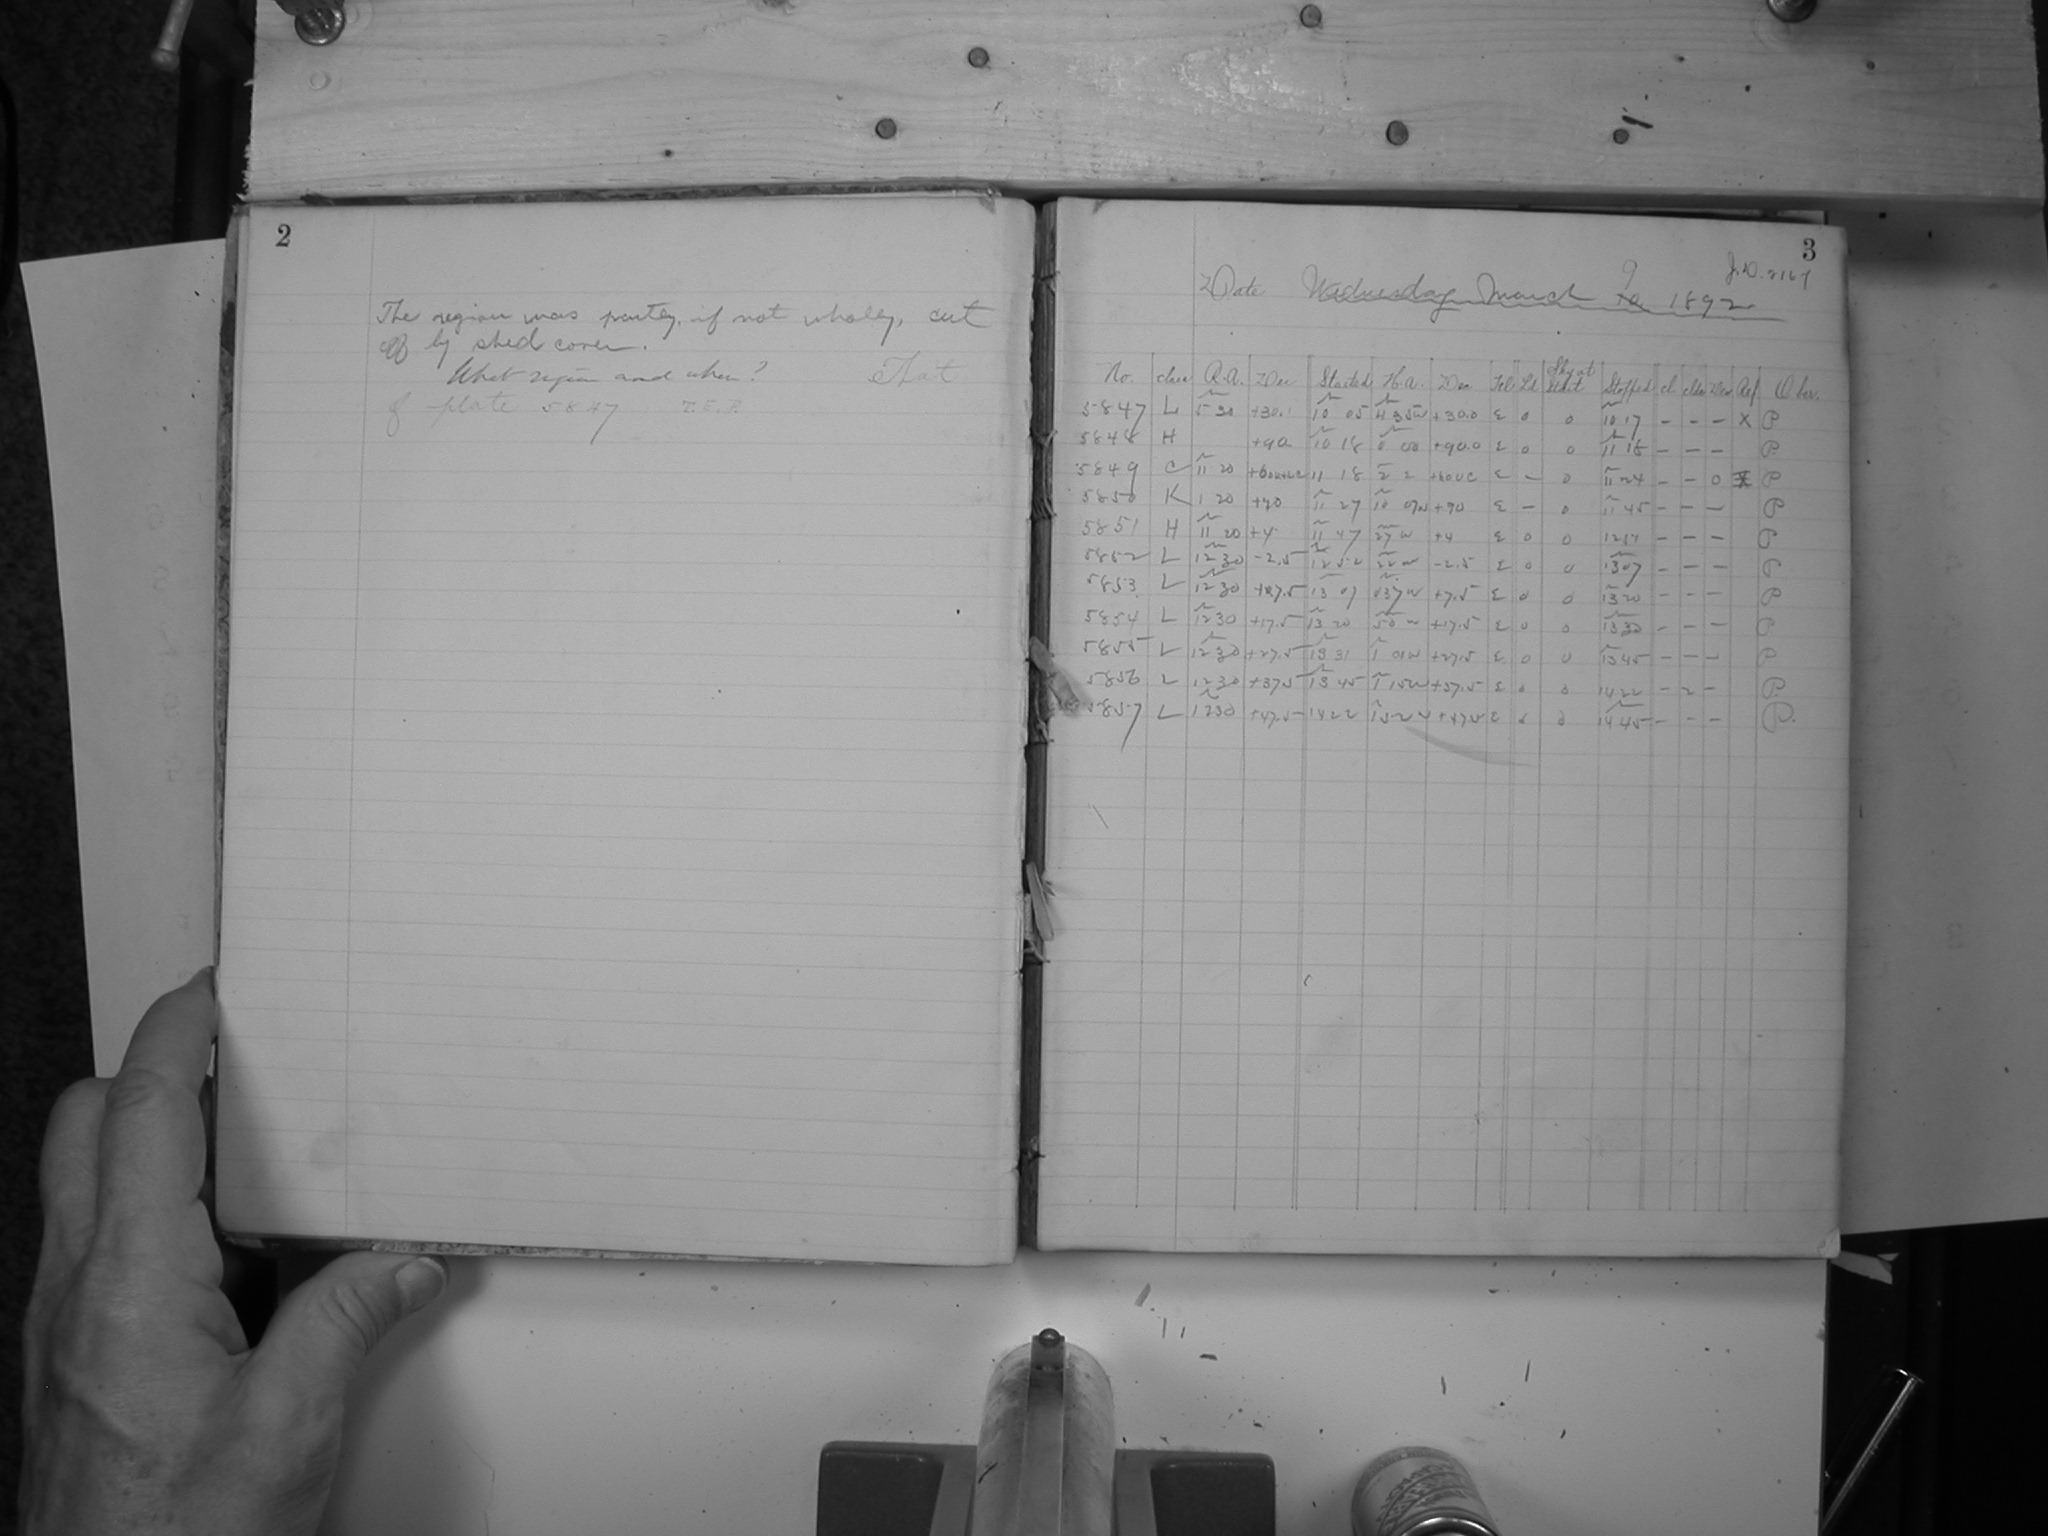 2
The region was partly, if not wholly, cut
off by shed cover.
What region and when? That
of plate 5847 T.E.R.
3
J.D. 2167
Date Wednesday March 9 1892
No. class R.A. Dec Started H.A. Dec Tel Ld Sky at Start Stopped cl clos Dew Ref Obser.
5847 L 5 30 +30.1 10 05 4 35w +30.0 E 0 0 10 17 - - - X P
5848 H +90 10 18 0 00 +90.0 E 0 0 11 18 - - - P
5849 C 11 20 11 18 E - 0 11 24 - - 0 P
5850 K 1 20 +90 11 27 10 07w +90 E - 0 11 45 - - - P
5851 H 11 20 +4 11 47 27 w +4 E 0 0 - - - P
5852 L 12 30 -2.5 12 52 22 w -2.5 E 0 0 13 07 - - - P
5853 L 12 30 +7.5 13 07 0 37w +7.5 E 0 0 13 20 - - - P
5854 L 12 30 +17.5 13 20 50 w +17.5 E 0 0 13 30 - - - P
5855 L 12 30 +27.5 13 31 1 01w +27.5 E 0 0 13 45 - - - P
5856 L 12 30 +37.5 13 45 1 15w +37.5 E 0 0 14 22 - 2 - P
5857 L 12 30 +47.5 14 22 1 52 w +47.5 E 0 0 14 45 - - - P.